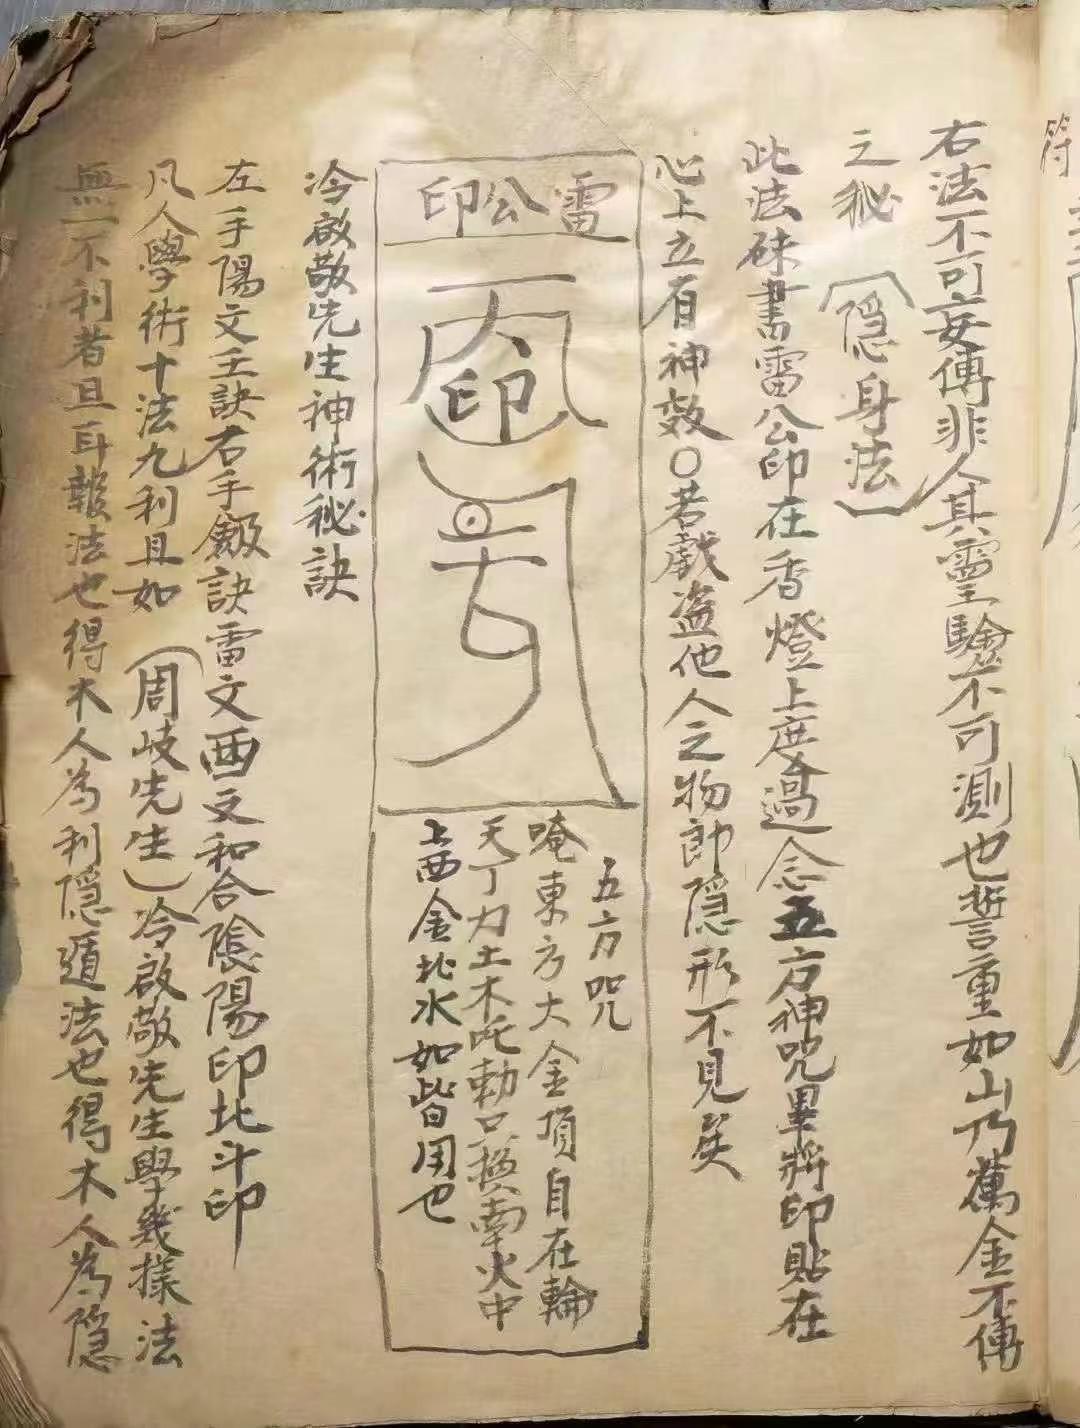 符
右法不可妄傳非人其靈驗不可測也誓重如山乃萬金不傳
之秘（隱身法）
此法硃書雷公印在香燈上度過念五方神咒畢將印貼在
心上立有神效〇若戲盗他人之物即隱形不見矣
雷公印
印
五方咒
唵東方大金頂自在輪
天丁力土木吒勅只换南火中
上西金北水如皆用也
冷啟敬先生神術秘訣
左手陽文壬訣右手訣雷文西文和合陰陽印北斗印
凡人學術十法九利且如（周岐先生）冷啟敬先生學幾樣法
無一不利者旦耳報法也得木人為利隱遁法也得木人為隱